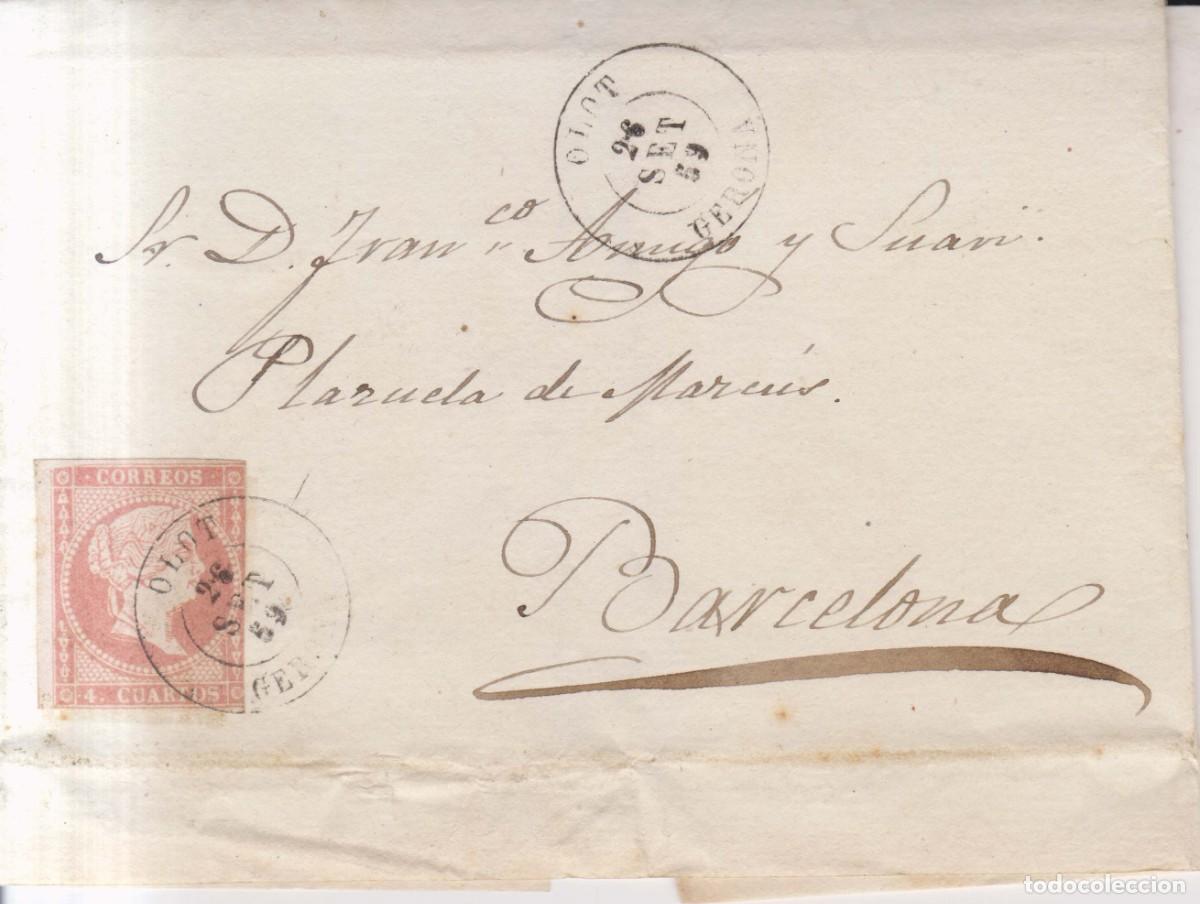 OLOT
26
SET
59
GERONA
Sr. D. Fran.co Amigo y Suari.
Plazuela de Marcús.
Barcelona
CORREOS
4. CUARTOS
OLOT
26
SET
59
GER
todocoleccion